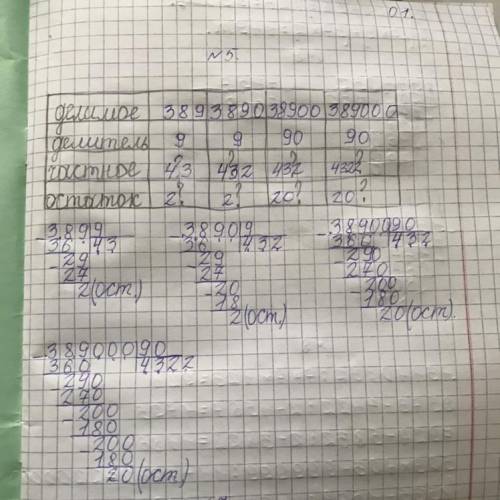 01.
№5.
делимое 389 3890 38900 389000
делитель 9 9 90 90
частное 43? 432? 432? 4322?
остаток 2? 2? 20? 20?
-389|9 -3890|9 -38900|90
36 |43 36 |432 360 |432
-29 -29 -290
27 27 270
2(ост) -20 -200
18 180
2(ост) 20(ост).
-389000|90
360 |4322
-290
270
-200
180
-200
180
20(ост)